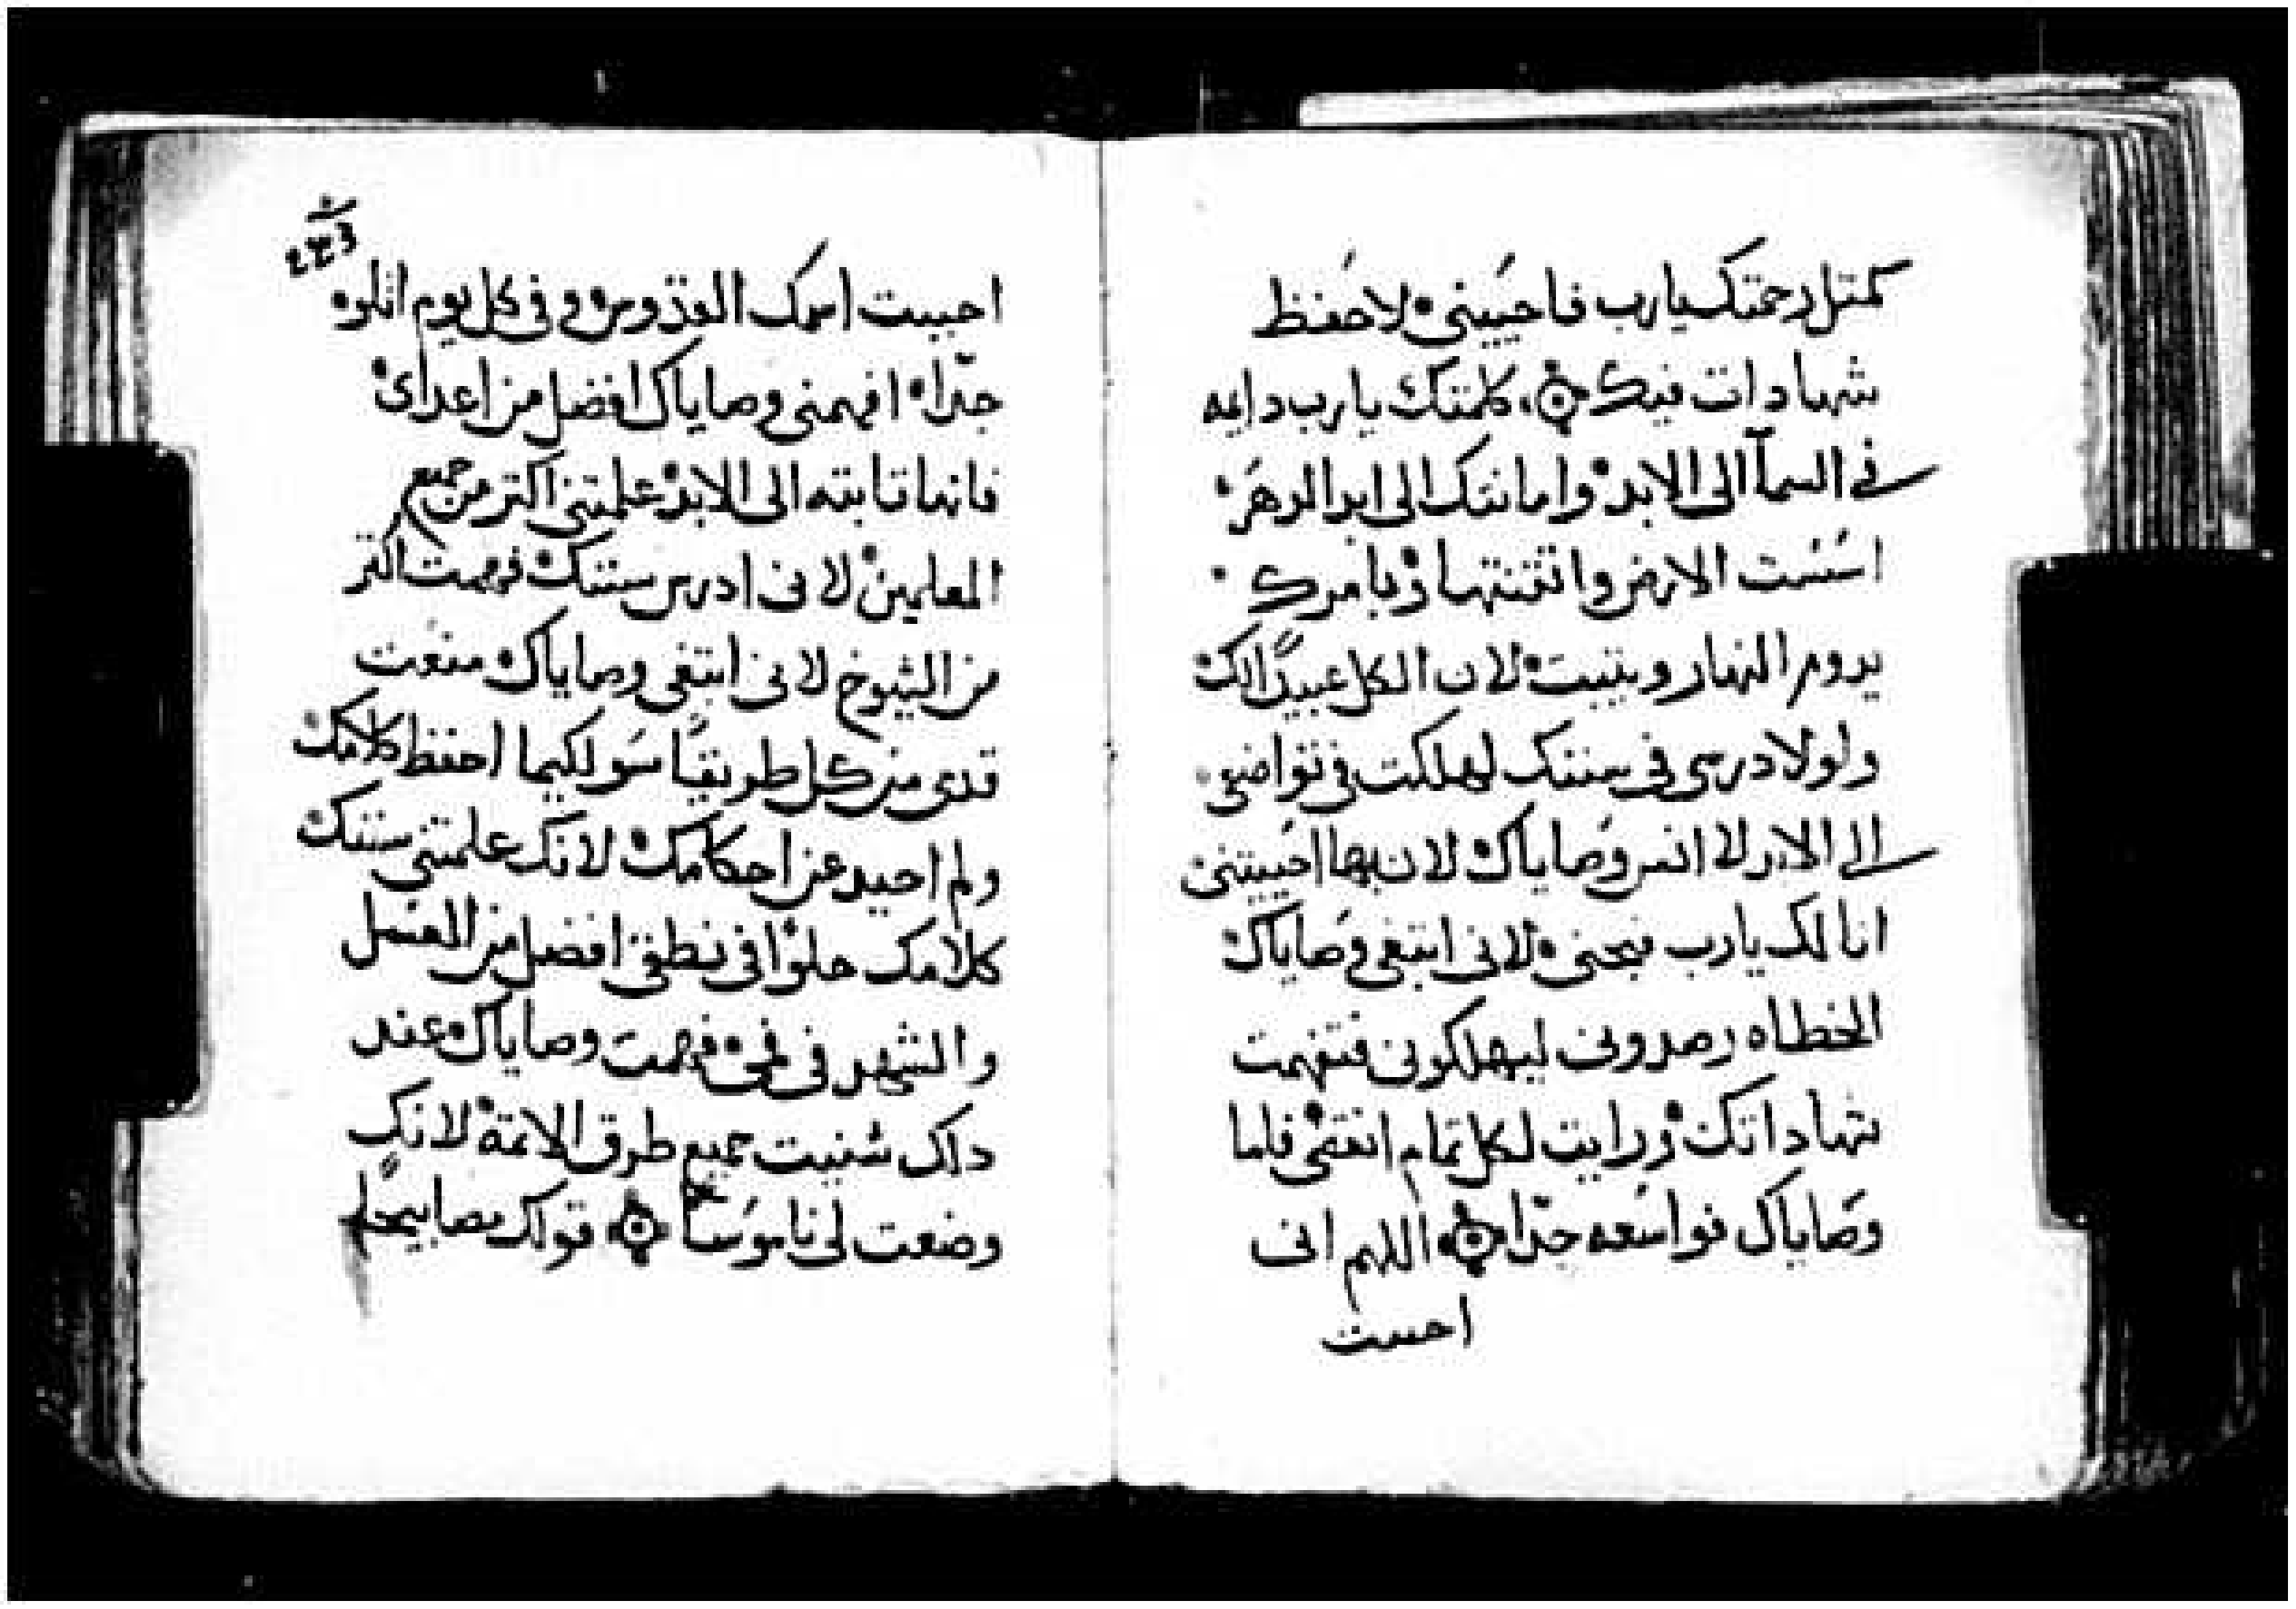 كمتل رحمتك يارب فاحييني لاحفظ
شهادات فيك ۞ كلمتك يارب دايمه
في السمآ الى الابد وامانتك الى ابد الدهر
اسست الارض واتقنتها وبامرك
يدوم النهار ويتبت لان الكل عبيدًا لك
ولولا درسي في سننك لهلكت في تواضعي
الى الابد لا انس وصاياك لان بها احييتني
انا لك يارب فنجني لاني ابتغي وصاياك
الخطاه رصدوني ليهلكوني فتفهمت
شهاداتك ورايت لكل تمام انقضي فاما
وصاياك فواسعه جدّا ۞ اللهم اني
احببت
احببت اسمك القدوس وفي كل يوم اتلوه
جدّا افهمني وصاياك افضل من اعداي
فانها تابته الى الابد علمتني اكتر من جميع
المعلمين لاني ادرس سننك فهمت اكتر
من الشيوخ لاني ابتغي وصاياك منعت
قدمي من كل طريقًا سو لكيما احفظ كلامك
ولم احيد عن احكامك لانك علمتني سننك
كلامك حلوًا في نطقي افضل من العسل
والشهد في فمي فهمت وصاياك عند
دلك شنيت جميع طرق الاتمة لانك
وضعت لي ناموسًا ۞ قولك مصابيحًا